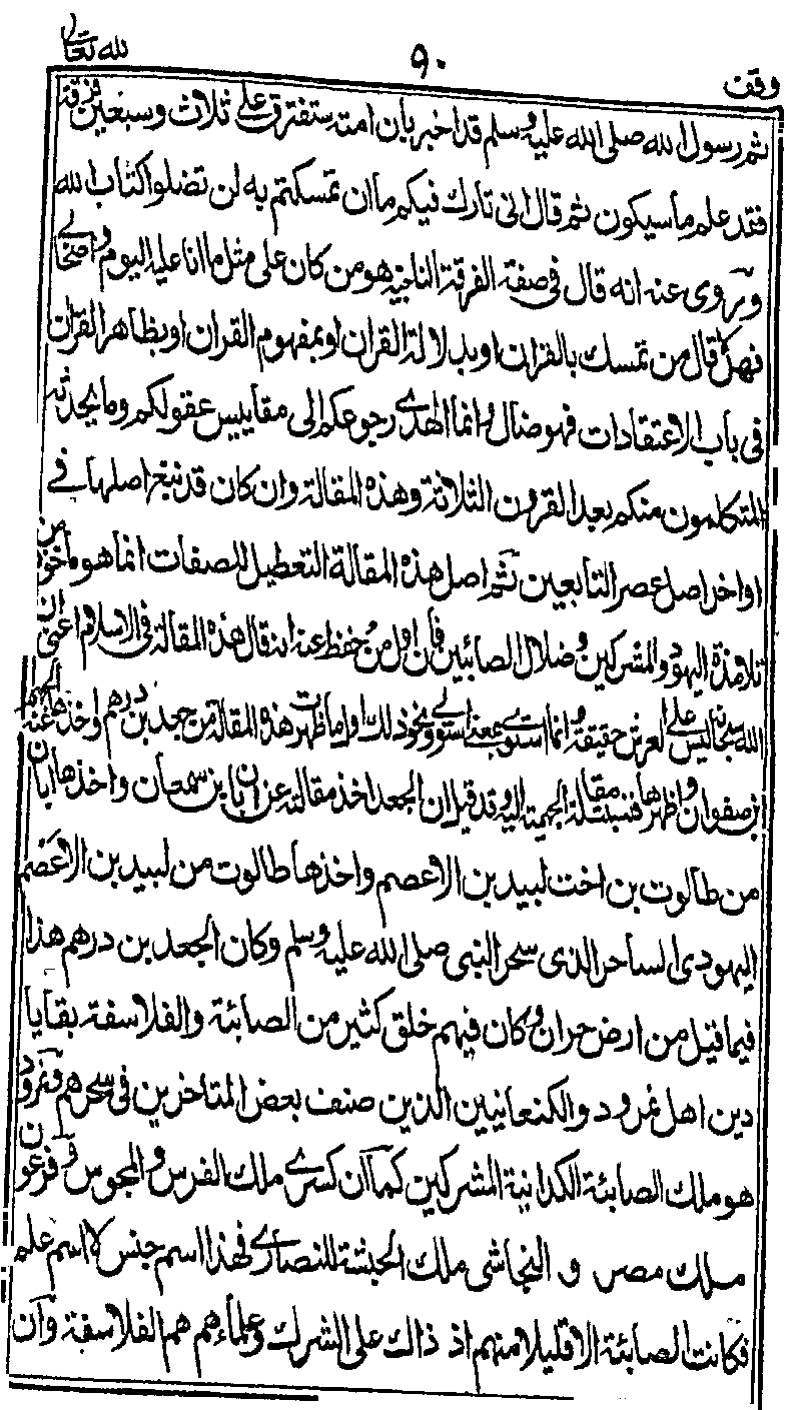 وقف ٩٠ لله تعالى
ثم رسول الله صلى الله عليه وسلم قد اخبر بأن امته ستفترق على ثلاث وسبعين فرقة
فقد علم ما سيكون ثم قال انى تارك فيكم ما ان تمسكتم به لن تضلوا كتاب الله
ويروى عنه انه قال فى صفة الفرقة الناجية هو من كان على مثل ما انا عليه اليوم واصحابے
فهلا قال من تمسك بالقران او بدلالة القران او بمفهوم القران او بظاهر القران
فى باب الاعتقادات فهو ضال وانما الهدے رجوعكم الى مقاييس عقولكم وما يحدثه
المتكلمون منكم بعد القرون الثلاثة وهذه المقالة وان كان قد نبغ اصلها فے
اواخر اصل عصر التابعين ثم اصل هذه المقالة التعطيل للصفات انما هو ماخوذ من
تلامذة اليهود والمشركين وضلال الصابئين فان اول من حفظ عنه انه قال هذه المقالة فى الاسلام اعنى ان
الله سبحانه ليس على العرش حقيقة وانما استوے بمعنے استولے ونحو ذلك اول ما ظهرت هذه المقالة من جعد بن درهم واخذها عنه الجهم
بن صفوان واظهرها فنسبت مقالة الجهمية اليه وقد قيل ان الجعد اخذ مقالته عن ابان ابن سمعان واخذها ابان
من طالوت بن اخت لبيد بن الاعصم واخذها طالوت من لبيد بن الاعصم
اليهودى الساحر الذى سحر النبى صلى الله عليه وسلم وكان الجعد بن درهم هذا
فيما قيل من ارض حران وكان فيهم خلق كثير من الصابئة والفلاسفة بقايا
دين اهل نمرود والكنعانيين الذين صنف بعض المتاخرين فى سحرهم ونمرود
هو ملك الصابئة الكدانية المشركين كما ان كسرے ملك الفرس والمجوس وفرعون
ملك مصر و النجاشى ملك الحبشة للنصارے فهذا اسم جنس لا اسم علم
فكانت الصابئة الا قليلا منهم اذ ذاك على الشرك وعلماءهم هم الفلاسفة وان